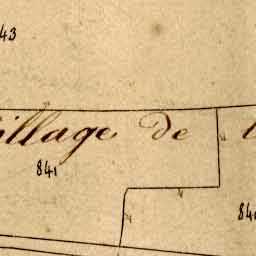 43
illage de
841
84